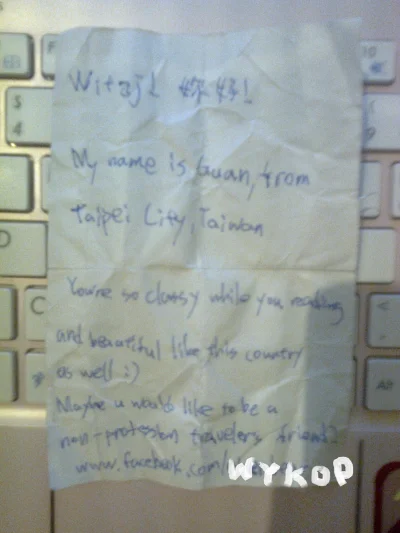 Witaj! 妳好!
My name is Guan, from
Taipei City, Taiwan
You're so classy while you reading
and beautiful like this country
as well :)
Maybe u would like to be a
non-profession travelers friend?
www.facebook.com/
WYKOP